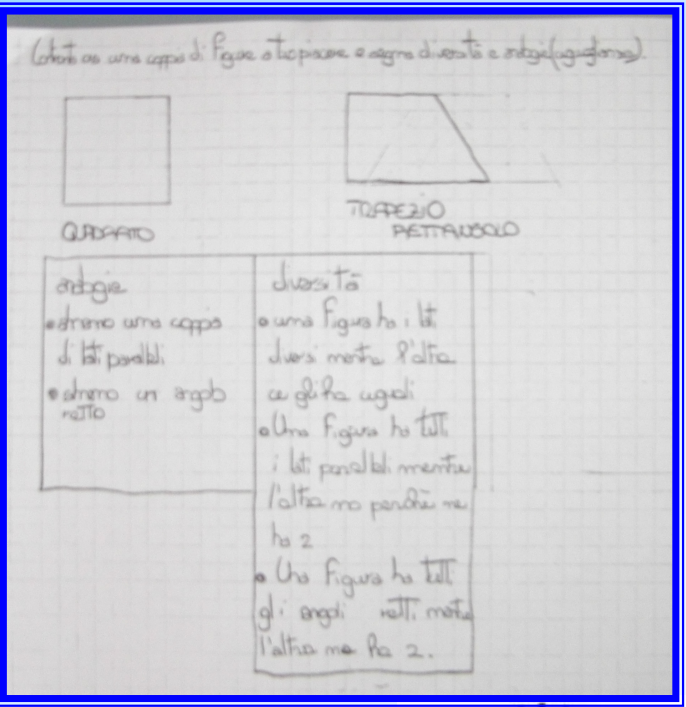 una coppia di figure a tuo piacere e segna diversità e analogie (uguaglianze).
QUADRATO
TRAPEZIO
RETTANGOLO
analogie
• almeno una coppia
di lati paralleli
• almeno un angolo
retto
diversità
• una figura ha i lati
diversi mentre l'altra
ce gli ha uguali
• Una figura ha tutti
i lati paralleli mentre
l'altra no perché ne
ha 2
• Una figura ha tutti
gli angoli retti mentre
l'altra ne ha 2.